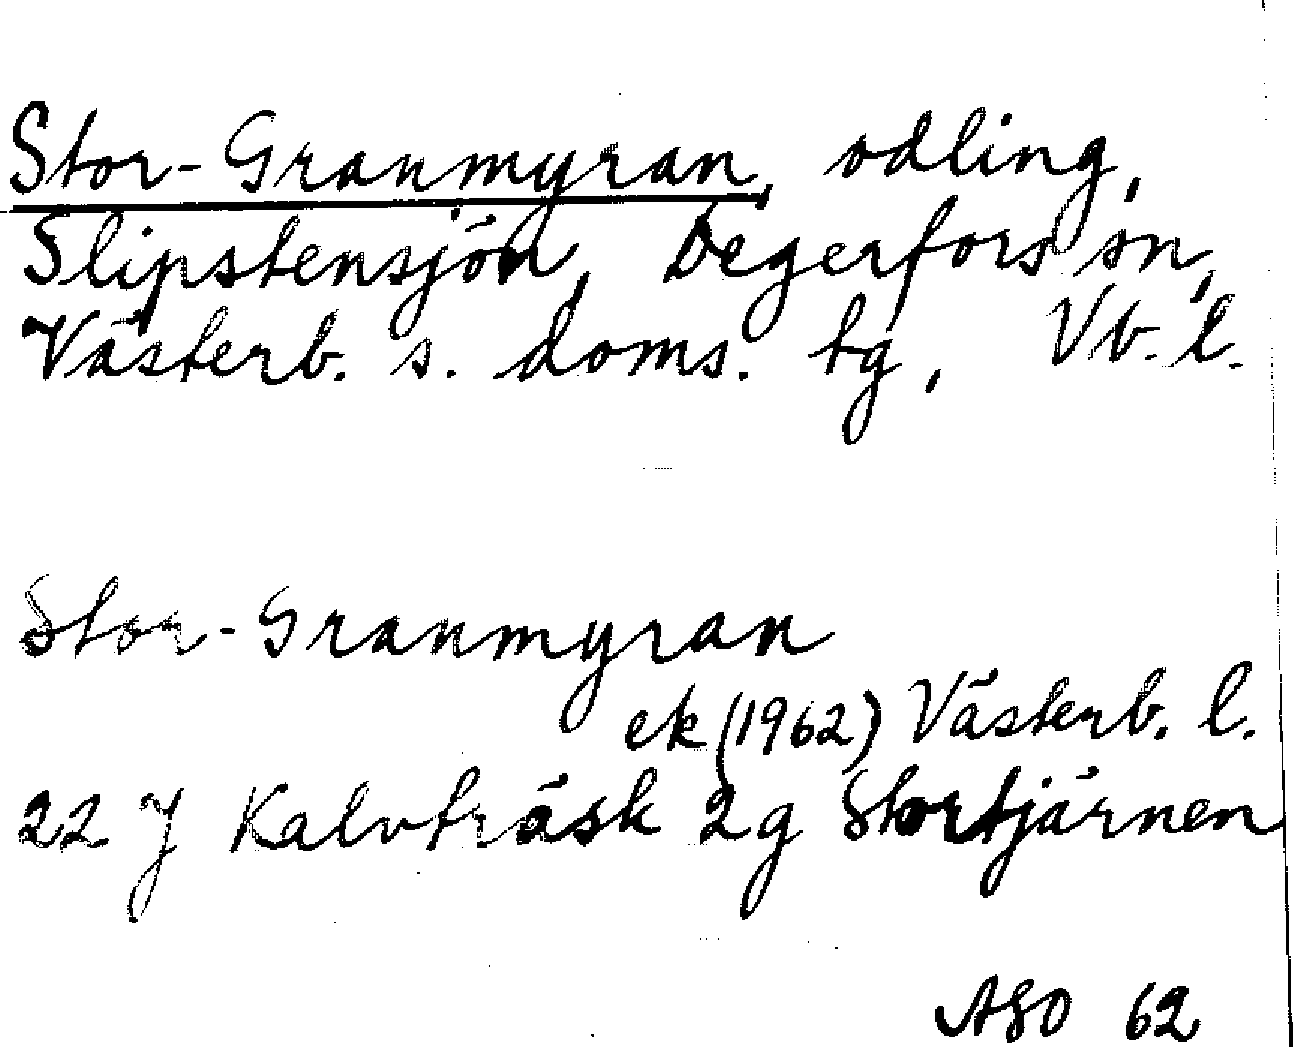 Stor-Granmyran, odling,
Slipstensjön, Degerfors sn,
Västerb. s. doms. tg, Vb. l.
Stor-Granmyran
ek (1962) Västerb. l.
22 J Kalvträsk 2g Stortjärnen
ASO 62